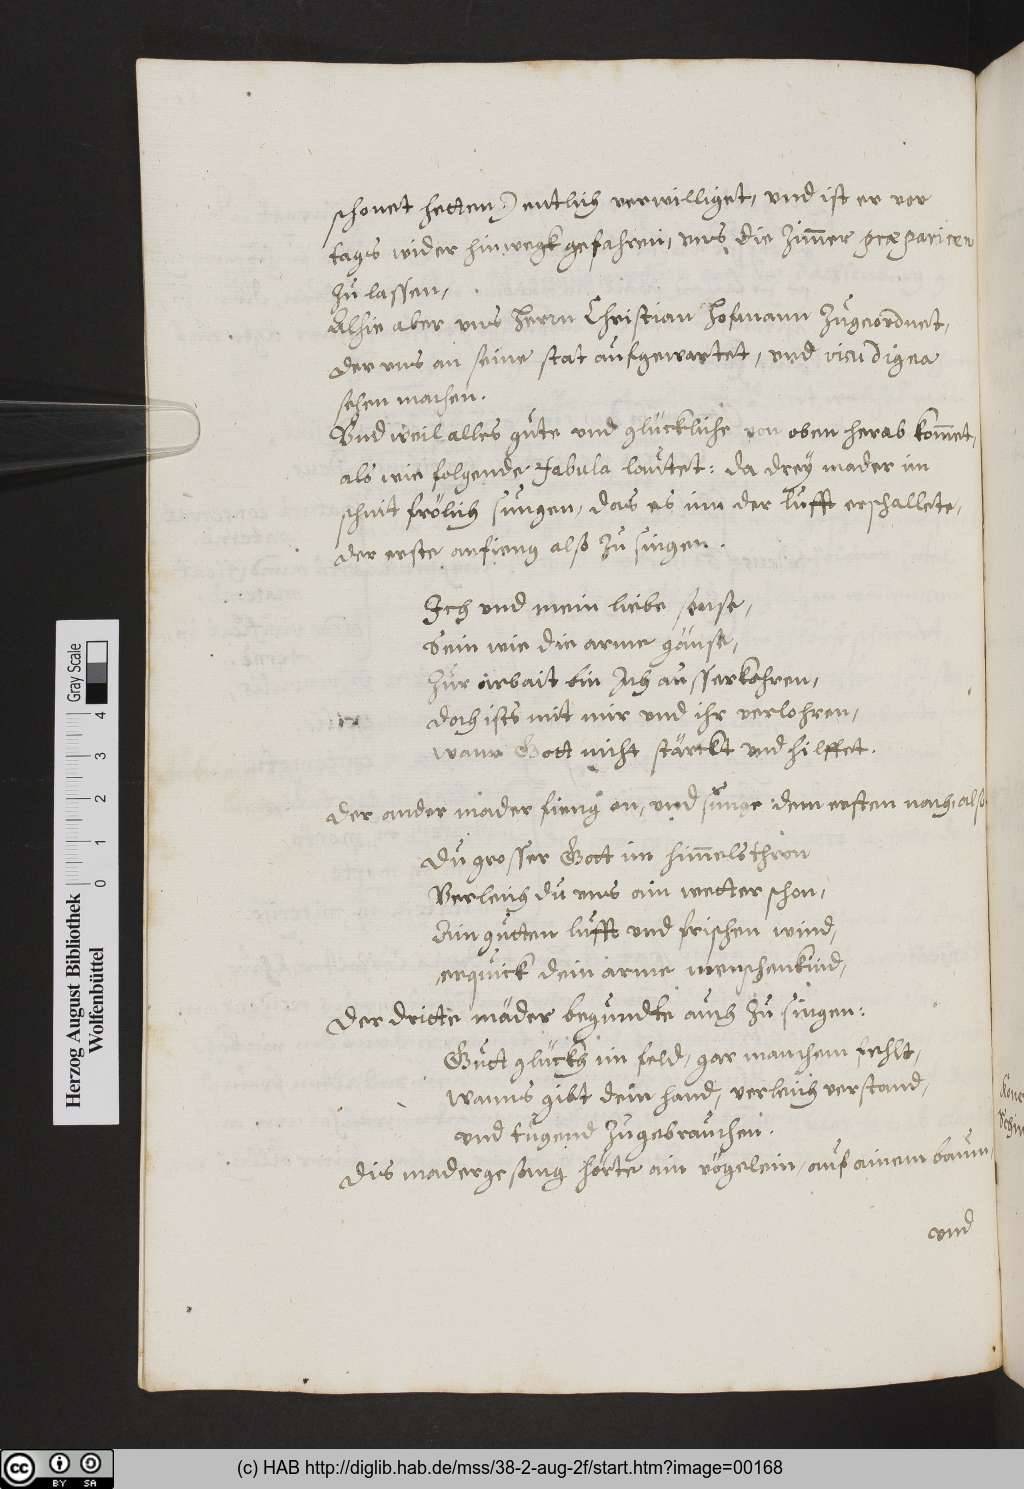 schonet hetten) entlich verwilliget, vnd ist er vor
tags wider hinwegk gefahren, vns die Zim̄er præpariren
Zu lassen,
Alhie aber vns Herrn Christian Hofmann Zugeordnet,
der vns an seine stat aufgewartet, vnd viendigea
sehen machen.
Vnd weil alles gute vnd glückliche von oben herab kom̄et,
als wie folgende Fabula lautet: da drey mader im
schnit frölich sungen, das es inn der lufft erschallete,
der erste anfieng also Zu singen.
Ich vnd mein liebe sense,
Sein wie die arme gänse,
Zur arbait bin Ich ausserkohren,
doch ists mit mir vnd ihr verlohren,
wann Gott nicht stärckt vnd hilffet.
der ander mader fieng an, vnd sunge dem ersten nach, also
du grosser Gott im him̄els thron
Verleich du vns ain wetter schon,
Ain gutten lufft vnd frischen wind,
erquick dein arme menschenkind,
der dritte mäder begundte auch Zu singen:
Gutt glückh im feld, gar manchem fehlt,
wanns gibt dein hand, verleich verstand,
vnd tugend Zugebrauchen.
dis madergesang hörte ain vögelein, auf ainem baum,
vnd
Herzog August Bibliothek
Wolfenbüttel
0 1 2 3 4
Gray Scale
CC BY SA
(c) HAB http://diglib.hab.de/mss/38-2-aug-2f/start.htm?image=00168